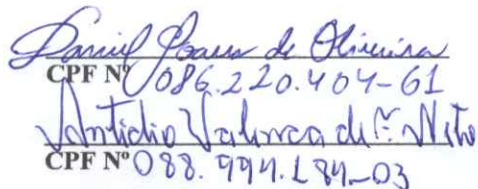 Daniel Soares de Oliveira
CPF Nº 086.220.404-61
Antidio Valença de F. Neto
CPF Nº 088.994.184-03